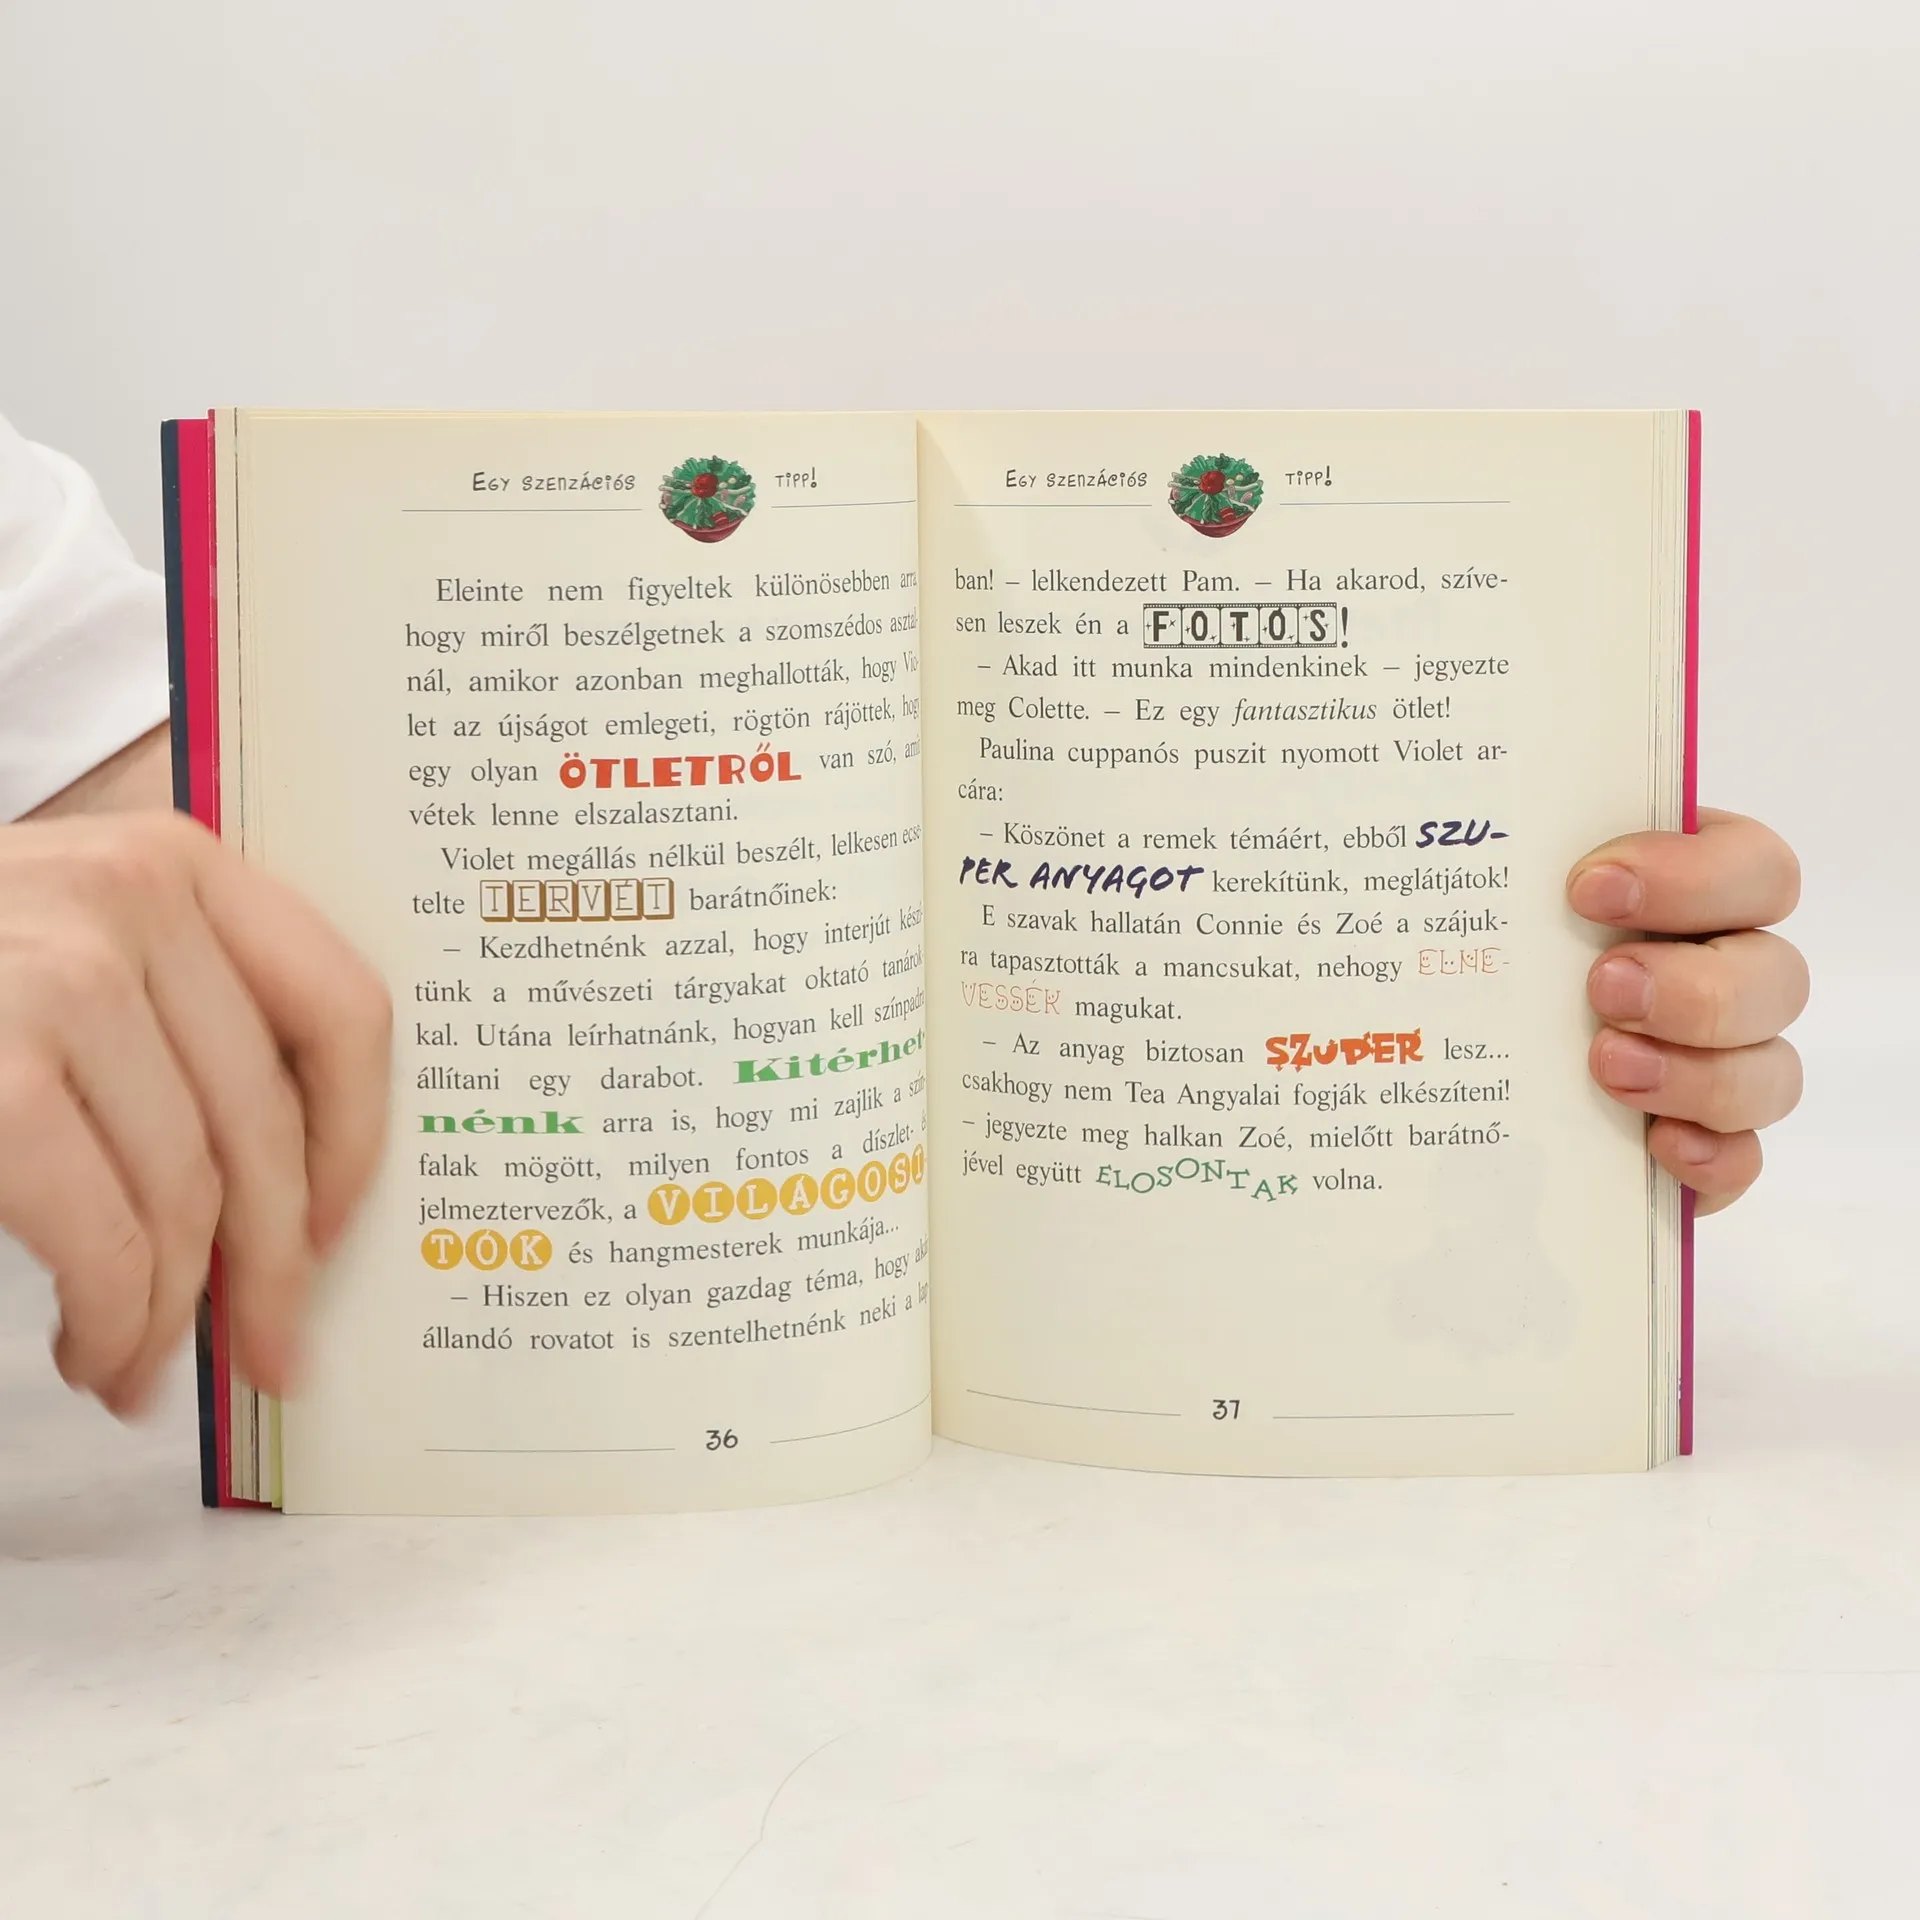 Egy szenzációs tipp!
Eleinte nem figyeltek különösebben arra
hogy miről beszélgetnek a szomszédos asztal-
nál, amikor azonban meghallották, hogy Vio-
let az újságot emlegeti, rögtön rájöttek, hogy
egy olyan ÖTLETRŐL van szó, amit
vétek lenne elszalasztani.
Violet megállás nélkül beszélt, lelkesen ecse-
telte TERVÉT barátnőinek:
– Kezdhetnénk azzal, hogy interjút készí-
tünk a művészeti tárgyakat oktató tanárok-
kal. Utána leírhatnánk, hogyan kell színpadra
állítani egy darabot. Kitérhet-
nénk arra is, hogy mi zajlik a szín-
falak mögött, milyen fontos a díszlet- és
jelmeztervezők, a VILÁGOSÍ-
TÓK és hangmesterek munkája...
– Hiszen ez olyan gazdag téma, hogy akár
állandó rovatot is szentelhetnénk neki a lap-
36
Egy szenzációs tipp!
ban! – lelkendezett Pam. – Ha akarod, szíve-
sen leszek én a FOTÓS!
– Akad itt munka mindenkinek – jegyezte
meg Colette. – Ez egy fantasztikus ötlet!
Paulina cuppanós puszit nyomott Violet ar-
cára:
– Köszönet a remek témáért, ebből SZU-
PER ANYAGOT kerekítünk, meglátjátok!
E szavak hallatán Connie és Zoé a szájuk-
ra tapasztották a mancsukat, nehogy ELNE-
VESSÉK magukat.
– Az anyag biztosan SZUPER lesz...
csakhogy nem Tea Angyalai fogják elkészíteni!
– jegyezte meg halkan Zoé, mielőtt barátnő-
jével együtt ELOSONTAK volna.
37